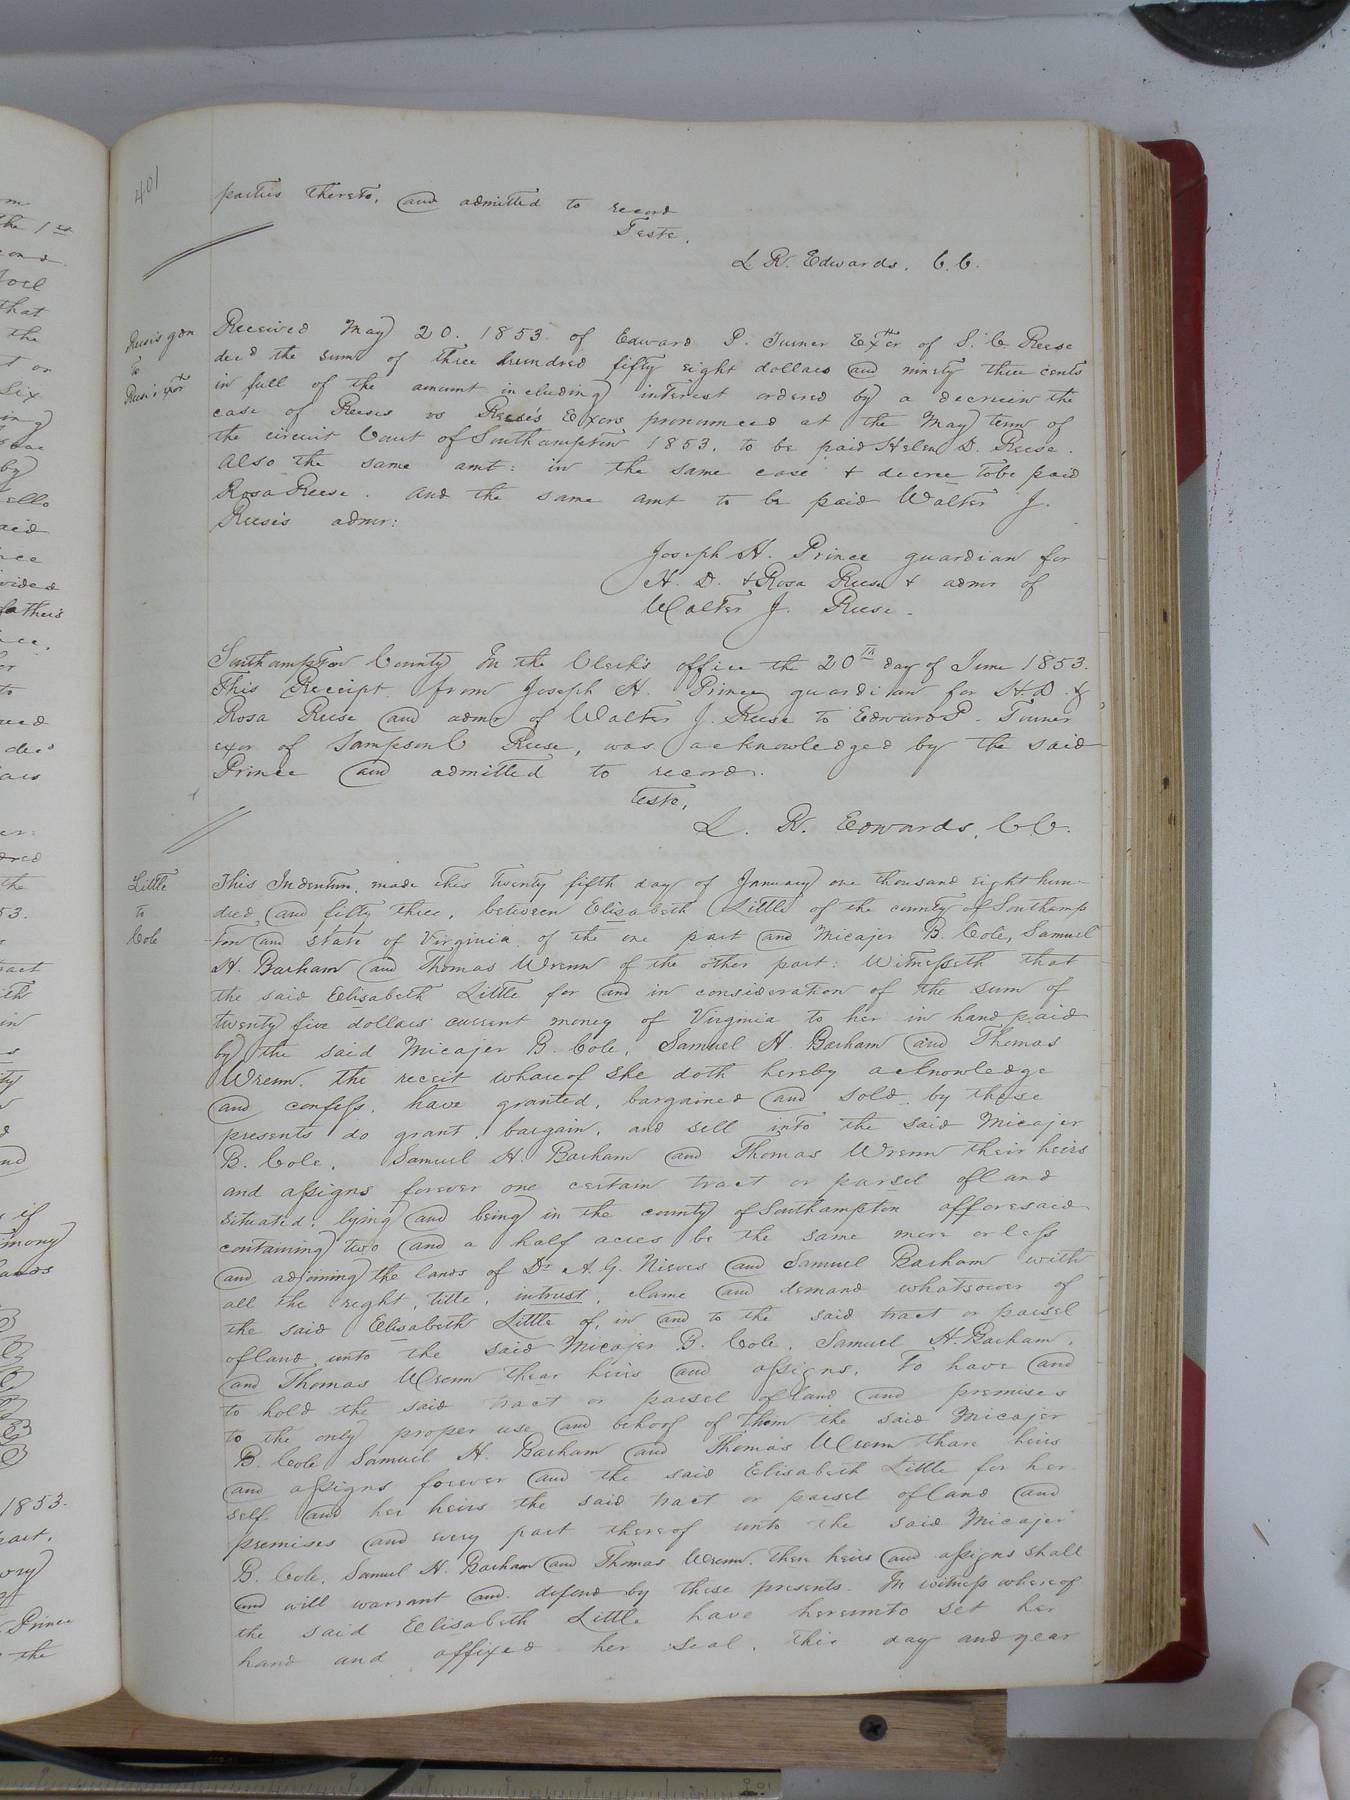 401
parties thereto, and admitted to record
Teste,
L. R. Edwards, C. C.
Reese's gdn
to
Reese's exor
Received May 20. 1853 of Edward P. Turner Extr of S. C Reese
decd the sum of three hundred fifty eight dollars and ninety three cents
in full of the amount including interest ordered by a decree in the
case of Reeses vs Reese's Exors pronounced at the May term of
the circuit Court of Southampton 1853, to be paid Helen D. Reese.
Also the same amt: in the same case & decree to be paid
Rosa Reese. And the same amt to be paid Walter J.
Reese's admr:
Joseph H. Prince guardian for
H. D. & Rosa Reese & admr of
Walter J. Reese.
Southampton County In the Clerk's office the 20th day of June 1853.
This Receipt from Joseph H. Prince guardian for H. D. &
Rosa Reese and admr of Walter J. Reese to Edward P. Turner
exor of Sampson C Reese, was acknowledged by the said
Prince and admitted to record.
Teste,
L. R. Edwards, C.C.
Little
to
Cole
This Indenture, made this twenty fifth day of January one thousand eight hun-
dred, and fifty three, between Elisabeth Little of the county of Southamp
ton and state of Virginia of the one part and Micajer B. Cole, Samuel
H. Barham and Thomas Wrenn of the other part: Witnesseth that
the said Elisabeth Little for and in consideration of the sum of
twenty five dollars current money of Virginia to her in hand paid
by the said Micajer B. Cole, Samuel H. Barham and Thomas
Wrenn. the receit whareof she doth hereby acknowledge
and confess, have granted, bargained and sold by these
presents do grant, bargain, and sell into the said Micajer
B. Cole, Samuel H. Barham and Thomas Wrenn their heirs
and assigns forever one certain tract or parsel of land
situated, lying and being in the county of Southampton afforesaid
containing two and a half acres be the same more or less
and adjoining the lands of Dr A. G. Nieves and Samuel Barham with
all the right, title, intrust, clame and demand whatsower of
the said Elisabeth Little of, in and to the said tract or parsel
of land unto the said Micajer B. Cole, Samuel H. Barham,
and Thomas Wrenn thear heirs and assigns, To have and
to hold the said tract or parsel of land and premises
to the only proper use and behoof of them the said Micajer
B. Cole Samuel H. Barham and Thomas Wrenn thare heirs
and assigns forever and the said Elisabeth Little for her
self and her heirs the said tract or parsel of land and
premises and every part thereof unto the said Micajer
B. Cole, Samuel H. Barham and Thomas Wrenn, their heirs and assigns shall
and will warrant and defend by these presents. In witness whereof
the said Elisabeth Little have hereunto set her
hand and affixed her seal, this day and year